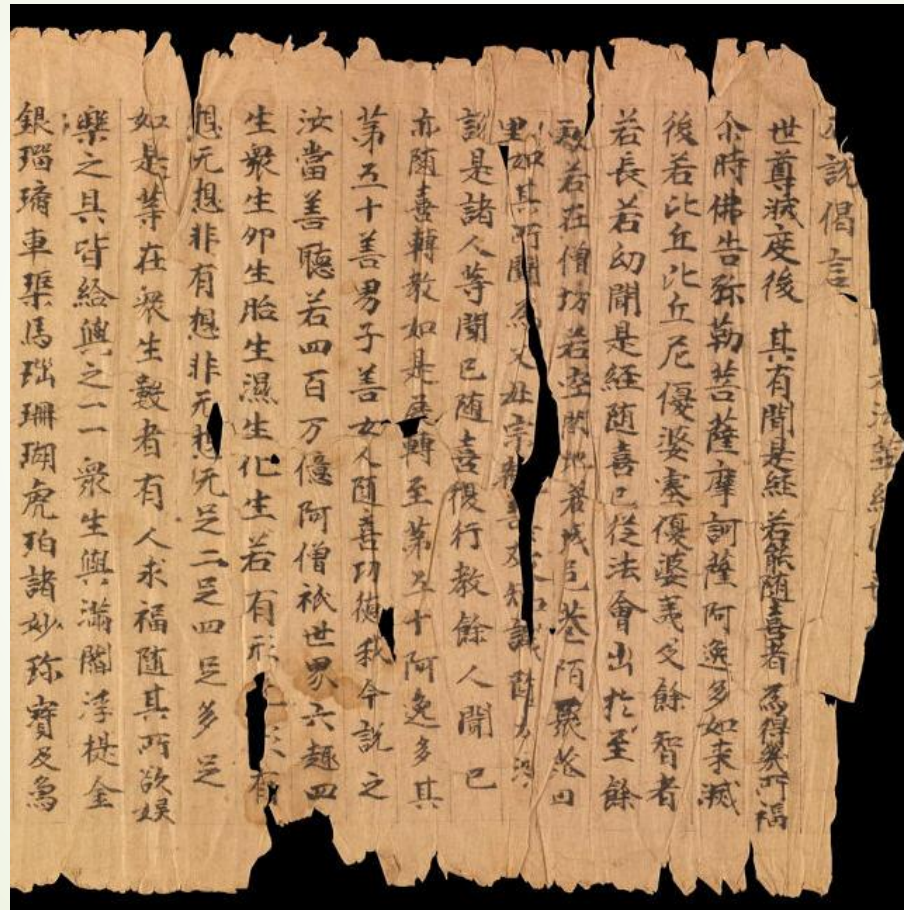 法華經
說偈言
世尊滅度後 其有聞是経 若能随喜者 為得幾所福
尒時佛告弥勒菩薩摩訶薩阿逸多如来滅
後若比丘比丘尼優婆塞優婆夷及餘智者
若長若幼聞是経随喜已從法會出於至餘
處若在僧坊若空閑地若城邑巷陌聚落田
里如其所聞為父母宗親善友知識随力演
說是諸人等聞已随喜復行教餘人聞已
亦随喜轉教如是展轉至第五十阿逸多其
第五十善男子善女人随喜功德我今說之
汝當善聽若四百万億阿僧祇世界六趣四
生衆生卵生胎生濕生化生若有形 有
想无想非有想非无想无足二足四足多足
如是等在衆生數者有人求福随其所欲娛
樂之具皆給與之一一衆生與滿閻浮提金
銀瑠璃車璖馬瑙珊瑚虎珀諸妙珎寶及為